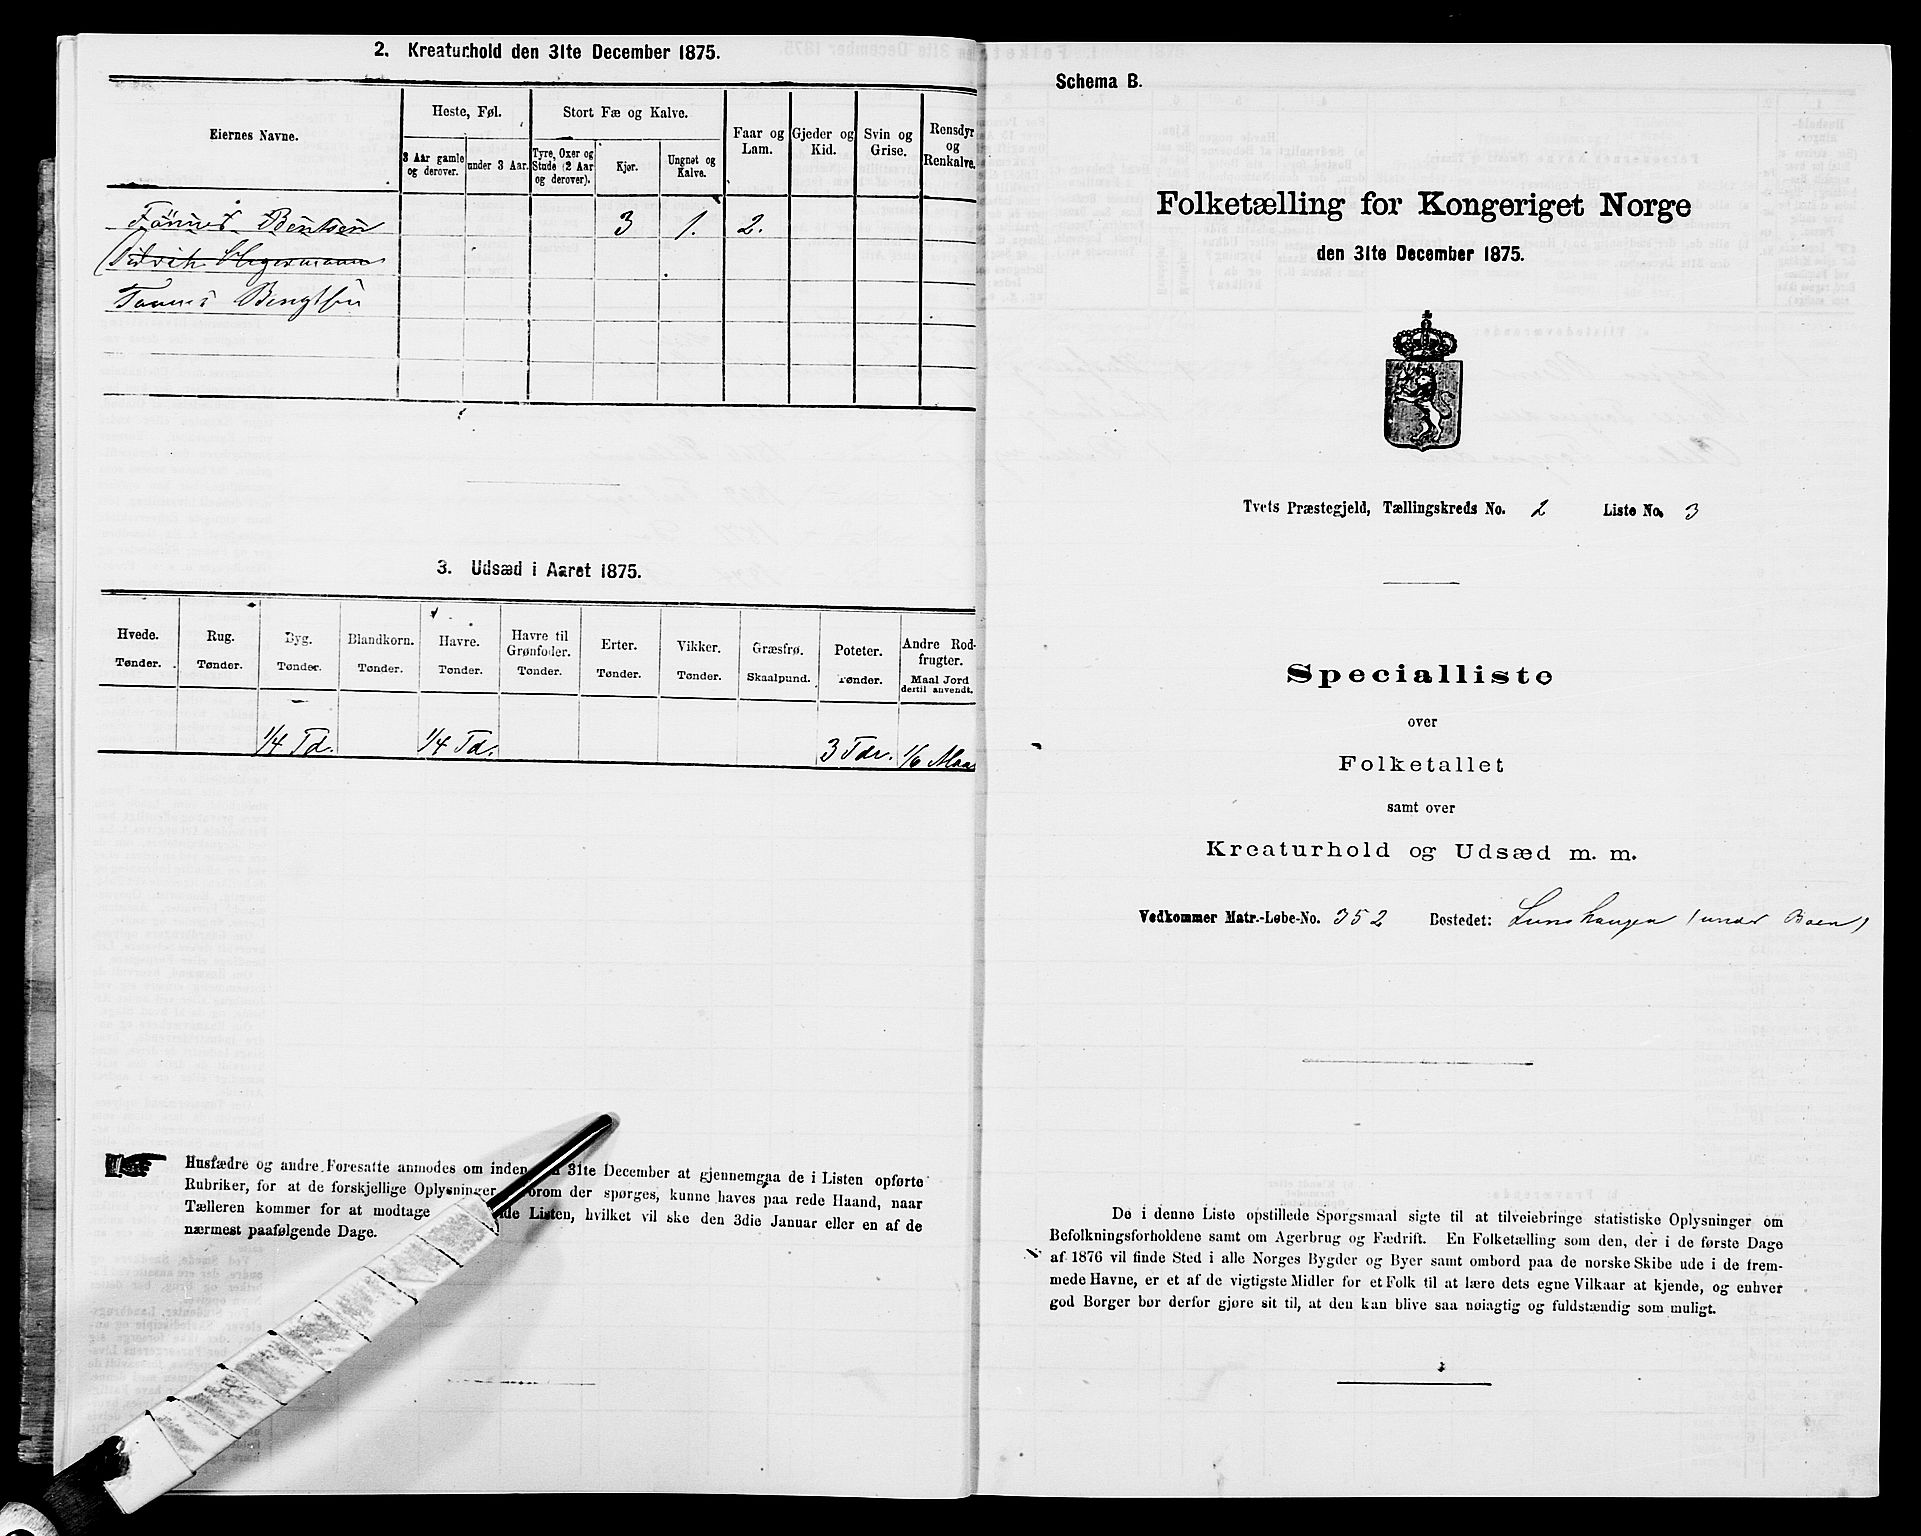 2. Kreaturhold den 31te December 1875.
Eiernes Navne.
Heste, Føl.
Stort Fæ og Kalve.
Faar og Lam.
Gjeder og Kid.
Svin og Grise.
Rensdyr og Renkalve.
3 Aar gamle og derover.
under 3 Aar.
Tyre, Oxer og Stude (2 Aar og derover).
Kjør.
Ungnøt og Kalve.
Tönnes Bentsen 3 1. 2.
Hegermann
Tønnes Bengtsen
3. Udsæd i Aaret 1875.
Hvede. Rug. Byg. Blandkorn. Havre. Havre til Grønfoder. Erter. Vikker. Græsfrø. Poteter. Andre Rodfrugter.
Tønder. Tønder. Tønder. Tønder. Tønder. Tønder. Tønder. Tønder. Skaalpund. Tønder. Maal Jord dertil anvendt.
1/4 Td. 1/4 Td. 3 Tdr. 1/6 Maa
Husfædre og andre Foresatte anmodes om inden 31te December at gjennemgaa de i Listen opførte
Rubriker, for at de forskjellige Oplysninger, hvorom der spørges, kunne haves paa rede Haand, naar
Tælleren kommer for at modtage Listen, hvilket vil ske den 3die Januar eller en af de
nærmest paafølgende Dage.
Schema B.
Folketælling for Kongeriget Norge
den 31te December 1875.
Tvets Præstegjeld, Tællingskreds No. 2 Liste No. 3
Specialliste
over
Folketallet
samt over
Kreaturhold og Udsæd m. m.
Vedkommer Matr.-Løbe-No. 352 Bostedet: Lunshaugen (under Boen)
De i denne Liste opstillede Spørgsmaal sigte til at tilveiebringe statistiske Oplysninger om
Befolkningsforholdene samt om Agerbrug og Fædrift. En Folketælling som den, der i de første Dage
af 1876 vil finde Sted i alle Norges Bygder og Byer samt ombord paa de norske Skibe ude i de frem-
mede Havne, er et af de vigtigste Midler for et Folk til at lære dets egne Vilkaar at kjende, og enhver
god Borger bør derfor gjøre sit til, at den kan blive saa nøiagtig og fuldstændig som muligt.